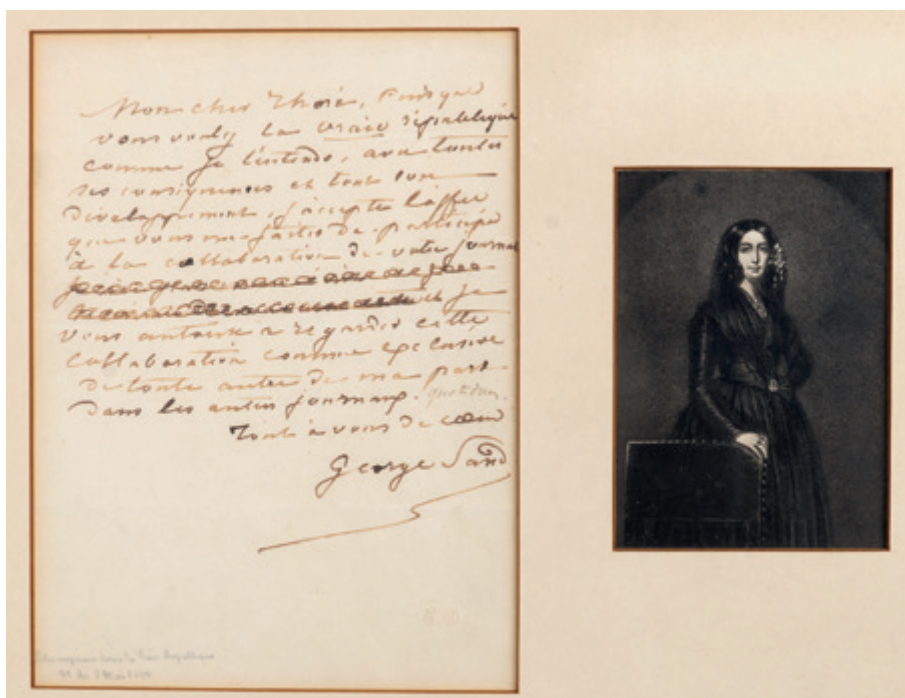 Mon cher Thoré, Puisque
vous voulez la vraie république
comme je l'entends, avec toutes
ses conséquences et tout son
développement, j'accepte l'offre
que vous me faites de participer
à la collaboration de votre journal
et je
vous autorise à regarder cette
collaboration comme exclusive
de toute autre de ma part
dans les autres journaux quotidiens.
Tout à vous de cœur
George Sand